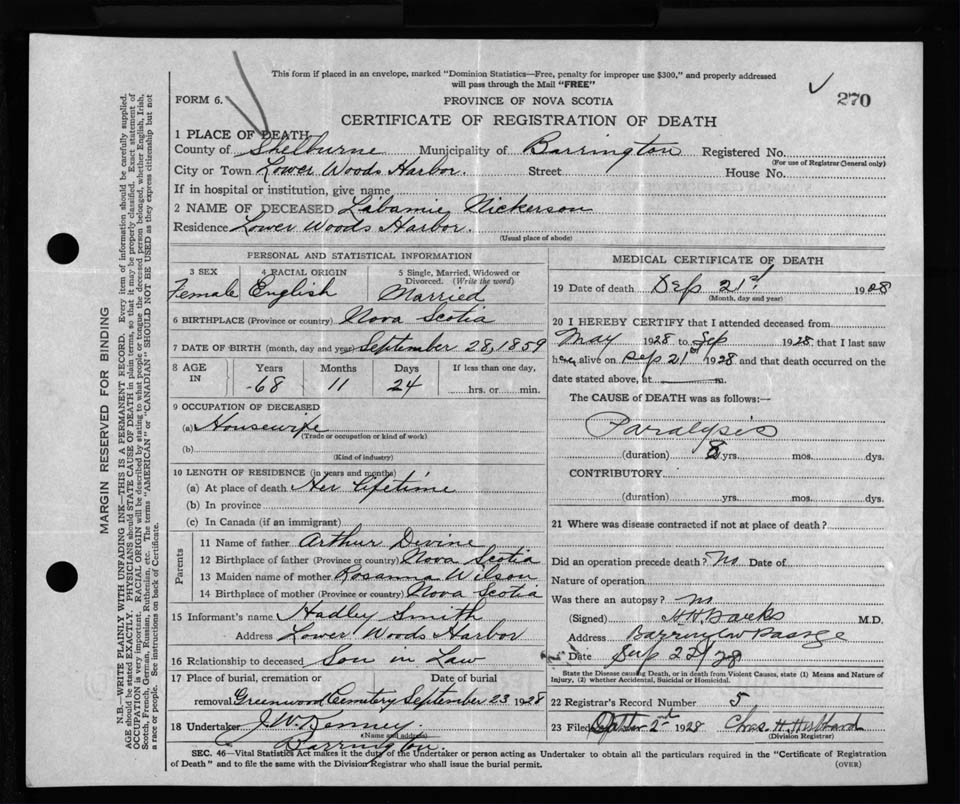 This form if placed in an envelope, marked "Dominion Statistics—Free, penalty for improper use $300," and properly addressed
will pass through the Mail "FREE"
FORM 6.
PROVINCE OF NOVA SCOTIA
270
CERTIFICATE OF REGISTRATION OF DEATH
1 PLACE OF DEATH
County of Shelburne Municipality of Barrington Registered No.
(For use of Registrar General only)
City or Town Lower Woods Harbor. Street House No.
If in hospital or institution, give name
2 NAME OF DECEASED Labamie Nickerson
Residence Lower Woods Harbor.
(Usual place of abode)
PERSONAL AND STATISTICAL INFORMATION
3 SEX
Female
4 RACIAL ORIGIN
English
5 Single, Married, Widowed or
Divorced. (Write the word)
Married
6 BIRTHPLACE (Province or country) Nova Scotia
7 DATE OF BIRTH (month, day and year) September 28, 1859
8 AGE
IN
Years
68
Months
11
Days
24
If less than one day,
hrs. or min.
9 OCCUPATION OF DECEASED
(a) Housewife
(Trade or occupation or kind of work)
(b)
(Kind of industry)
10 LENGTH OF RESIDENCE (in years and months)
(a) At place of death Her Lifetime
(b) In province
(c) In Canada (if an immigrant)
Parents
11 Name of father Arthur Devine
12 Birthplace of father (Province or country) Nova Scotia
13 Maiden name of mother Rosanna Wilson
14 Birthplace of mother (Province or country) Nova Scotia
15 Informant's name Hadley Smith
Address Lower Woods Harbor
16 Relationship to deceased Son in Law
17 Place of burial, cremation or Date of burial
removal Greenwood Cemetery September 23 1928
18 Undertaker J. W. Kenney.
(Name and address)
Barrington.
MEDICAL CERTIFICATE OF DEATH
19 Date of death Sep 21st 1928
(Month, day and year)
20 I HEREBY CERTIFY that I attended deceased from
May 1928 to Sep 1928, that I last saw
her alive on Sep 21st 1928 and that death occurred on the
date stated above, at m.
The CAUSE of DEATH was as follows:—
Paralysis
(duration) 8 yrs. mos. dys.
CONTRIBUTORY
(duration) yrs. mos. dys.
21 Where was disease contracted if not at place of death?
Did an operation precede death? No Date of
Nature of operation
Was there an autopsy? no
(Signed) H H Banks M.D.
Address Barrington Passage
Date Sep 22/28
State the Disease causing Death, or in death from Violent Causes, state (1) Means and Nature of
Injury, (2) whether Accidental, Suicidal or Homicidal.
22 Registrar's Record Number 5
23 Filed 2nd 1928 Chas. H. Hubbard
(Division Registrar)
SEC. 46—Vital Statistics Act makes it the duty of the Undertaker or person acting as Undertaker to obtain all the particulars required in the "Certificate of Registration
of Death" and to file the same with the Division Registrar who shall issue the burial permit.
(OVER)
MARGIN RESERVED FOR BINDING
N.B.—WRITE PLAINLY WITH UNFADING INK—THIS IS A PERMANENT RECORD. Every item of information should be carefully supplied.
AGE should be stated EXACTLY. PHYSICIANS should STATE CAUSE OF DEATH in plain terms, so that it may be properly classified. Exact statement of
OCCUPATION is very important. RACIAL ORIGIN will be described by stating to what people or tongue the deceased person belonged, whether English, Irish,
Scotch, French, German, Russian, Ruthenian, etc. The terms "AMERICAN" or "CANADIAN" SHOULD NOT BE USED as they express citizenship but not
a race or people. See instructions on back of Certificate.